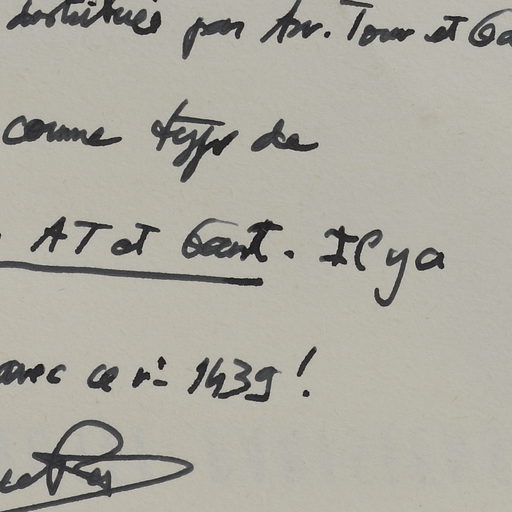 distribués par Av. Tour et Ga
comme type de
AT et Gant. Il y a
avec ce n° 1439!